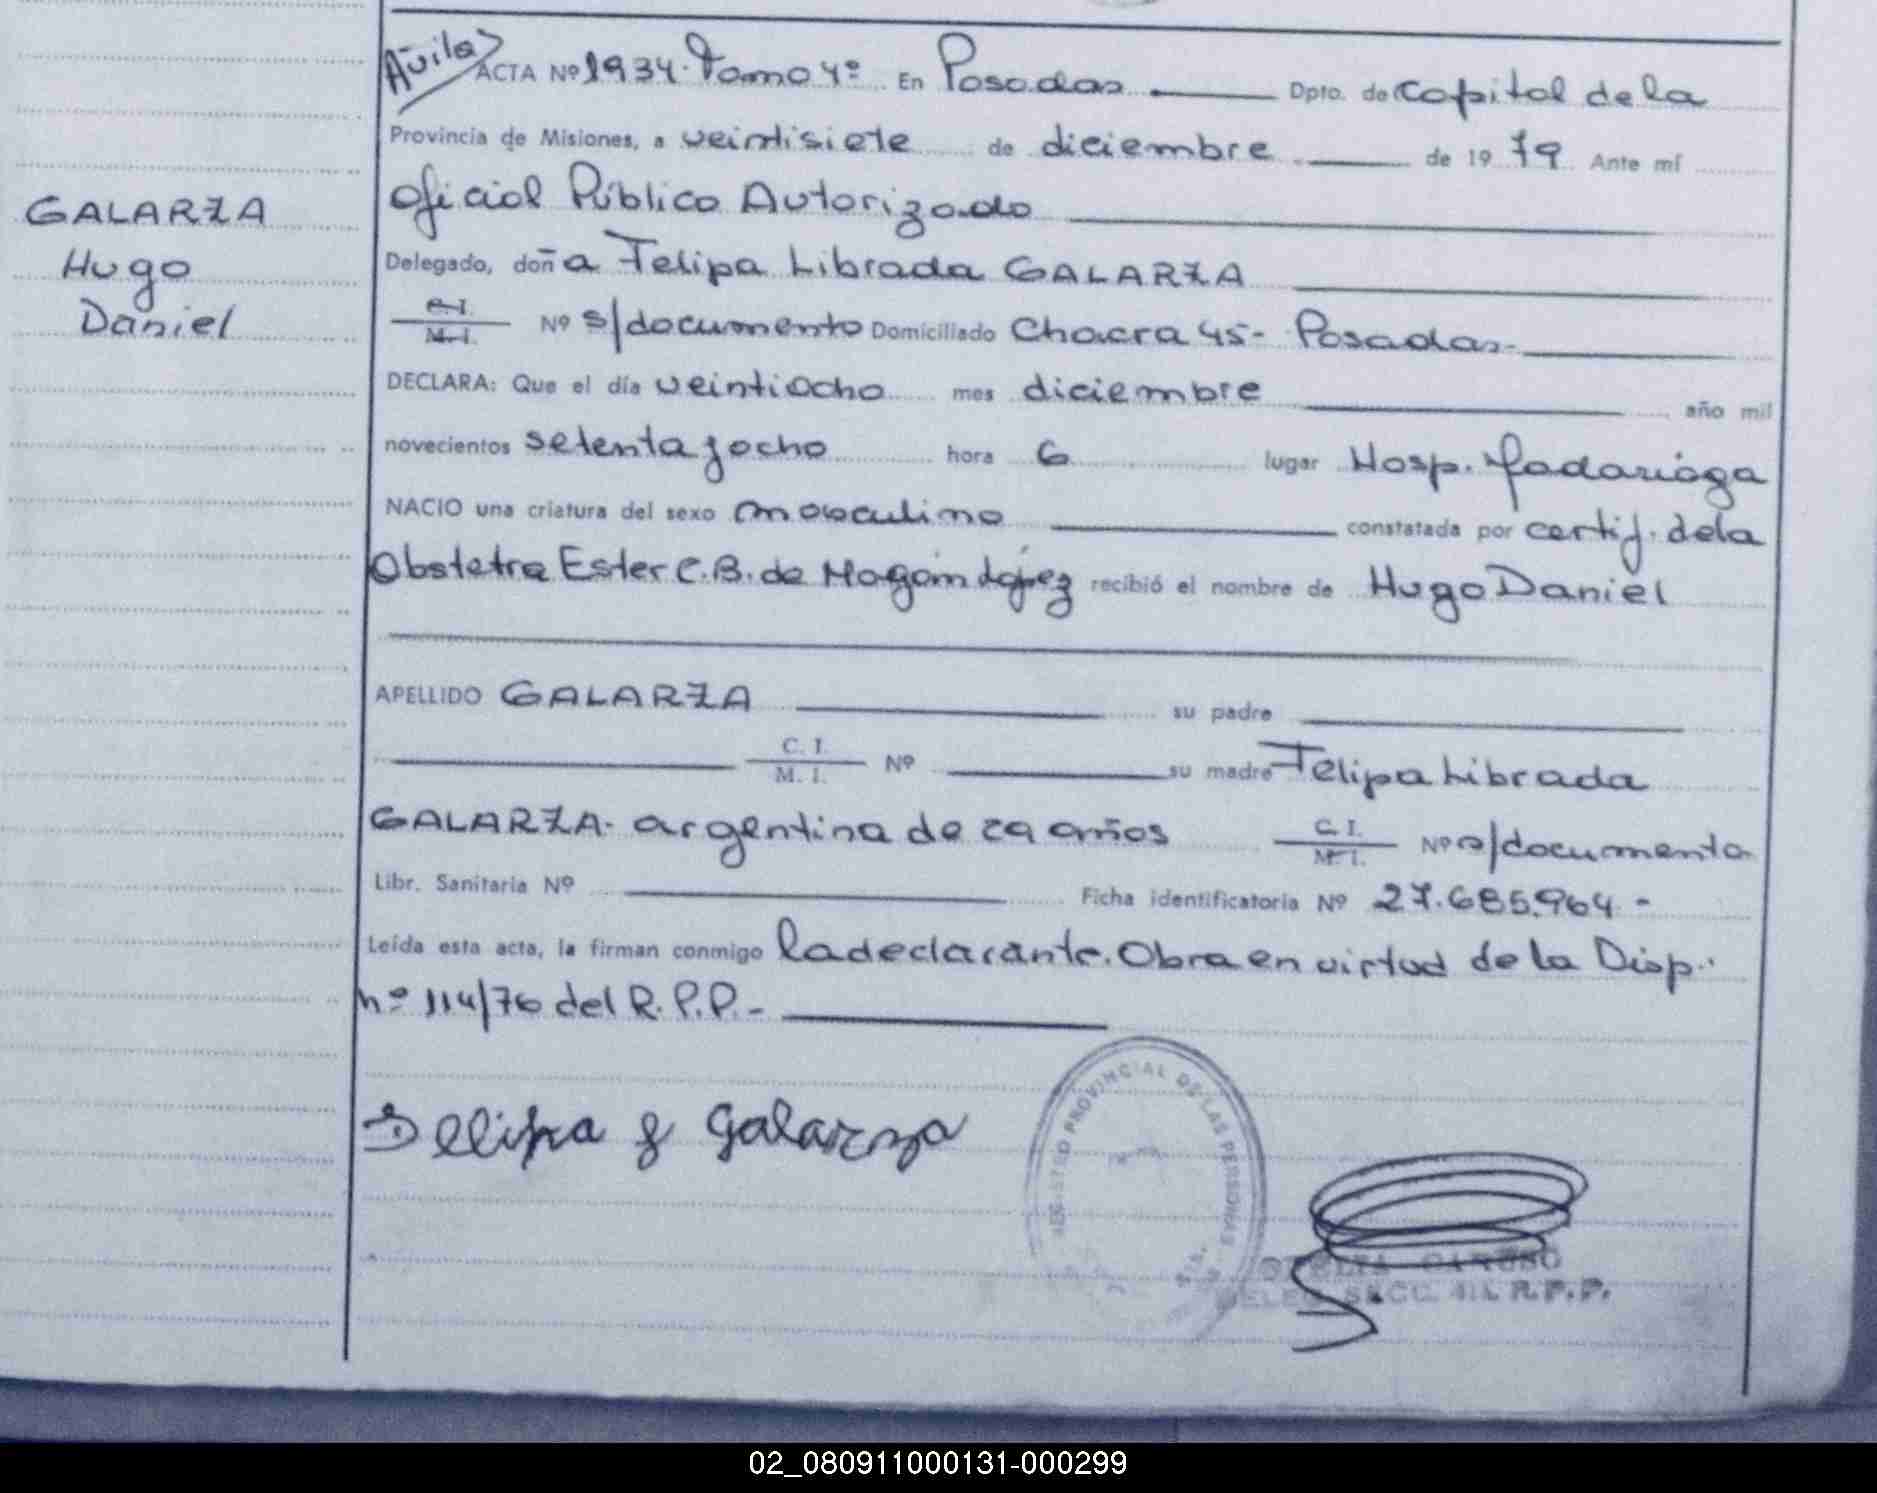 Avila
ACTA Nº 1934. Tomo 4º En Posadas Dpto. de Capital de la
Provincia de Misiones, a veintisiete de diciembre de 1979 Ante mí
Oficial Público Autorizado
GALARZA
Hugo
Daniel
Delegado, doña Felipa Librada GALARZA
C.I.
M.I. Nº s/documento Domiciliado Chacra 45- Posadas.-
DECLARA: Que el día veintiocho mes diciembre año mil
novecientos setenta y ocho hora 6 lugar Hosp. Madariaga
NACIO una criatura del sexo masculino constatada por certif. de la
Obstetra Ester C.B. de López recibió el nombre de Hugo Daniel
APELLIDO GALARZA su padre
C. I.
M. I. Nº su madre Felipa Librada
GALARZA- argentina de 29 años C.I.
M.I. Nº s/documento
Libr. Sanitaria Nº Ficha identificatoria Nº 27.685.964.-
Leída esta acta, la firman conmigo la declarante. Obra en virtud de la Disp.
nº 114/76 del R.P.P.-
Felipa L Galarza
REGISTRO PROVINCIAL DE LAS PERSONAS
CARUSO
DELEG. SECC. 4ta. R.P.P.
02_080911000131-000299